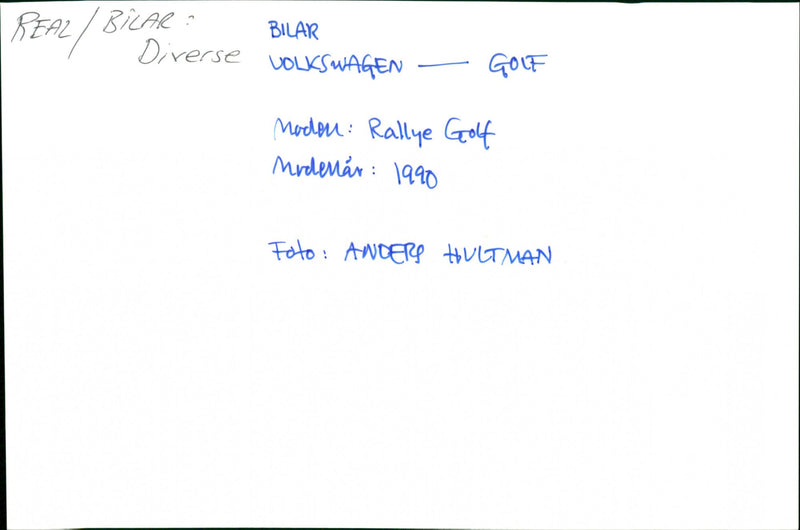 REAL/BILAR:
Diverse
BILAR
VOLKSWAGEN — GOLF
Modell: Rallye Golf
Modellår: 1990
Foto: ANDERS HULTMAN